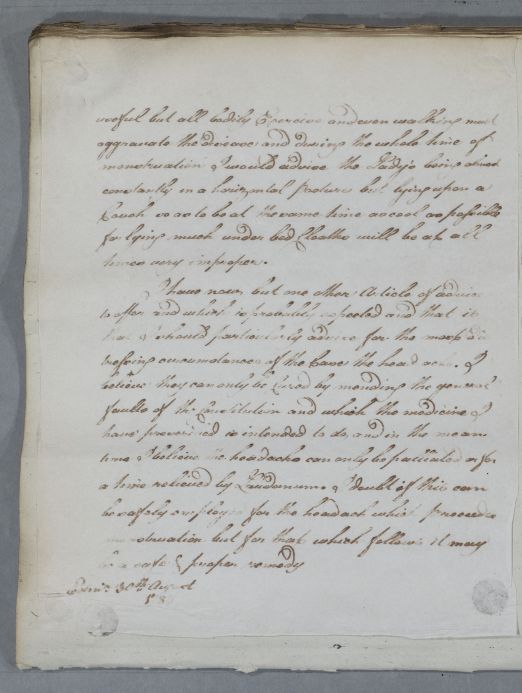 useful but all bodily Exercise and even walking must
aggravate the disease and during the whole time of
menstruation I would advise the Lady's being almost
constantly in a horizontal posture but lying upon a
Couch so as to be at the same time as cool as possible
for lying much under bed Cloaths will be at all
times very improper.
I have now but one other Article of advice
to offer and which is probably expected and that is
that I should particularly advise for the most dis
tressing circumstances of the Case the head ach. I
believe they can only be Cured by mending the general
faults of the Constitution and which the medicine I
have prescribed is intended to do, and in the mean
time I believe the headachs can only be palliated or for
a time relieved by Laudanum. I doubt if this can
be safely employed for the headach which precedes
menstruation but for that which follows it may
be a safe & proper remedy
Edinr. 30th August